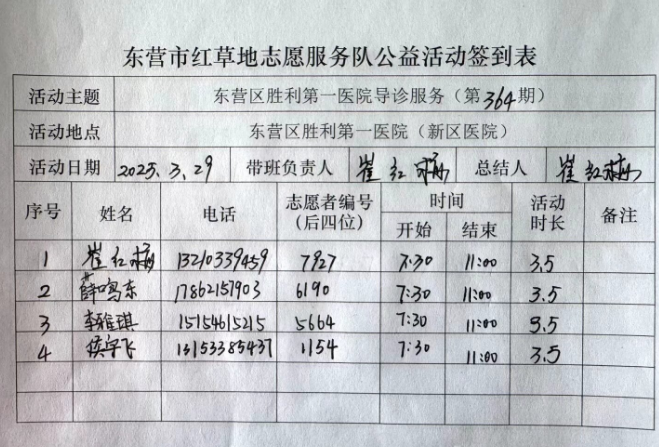 东营市红草地志愿服务队公益活动签到表
活动主题 东营区胜利第一医院导诊服务（第364期）
活动地点 东营区胜利第一医院（新区医院）
活动日期 2025.3.29 带班负责人 崔红梅 总结人 崔红梅
序号 姓名 电话 志愿者编号（后四位） 时间 开始 结束 活动时长 备注
1 崔红梅 13210339459 7927 7:30 11:00 3.5
2 薛鸣东 17862157903 6190 7:30 11:00 3.5
3 李雅琪 15154615215 5664 7:30 11:00 3.5
4 侯宇飞 13153385437 1154 7:30 11:00 3.5